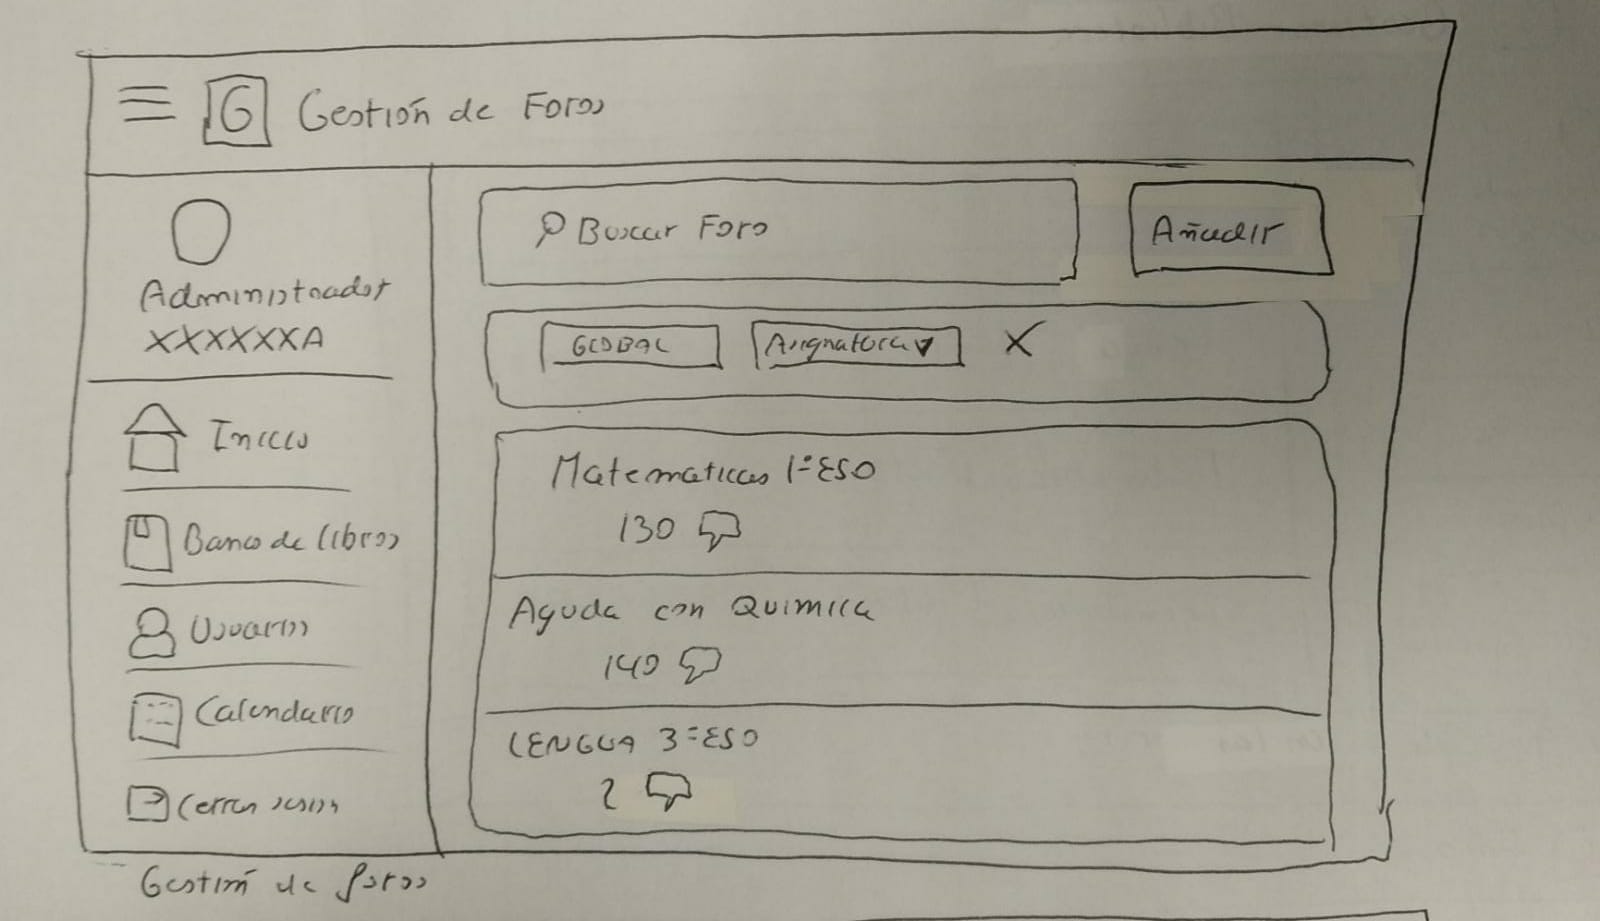 G Gestión de Foros
Administrador
XXXXXXA
Inicio
Banco de libros
Usuarios
Calendario
Cerrar sesión
Buscar Foro
Añadir
GLOBAL Asignatura X
Matematicas 1º ESO
130
Ayuda con Quimica
140
LENGUA 3º ESO
2
Gestión de foros